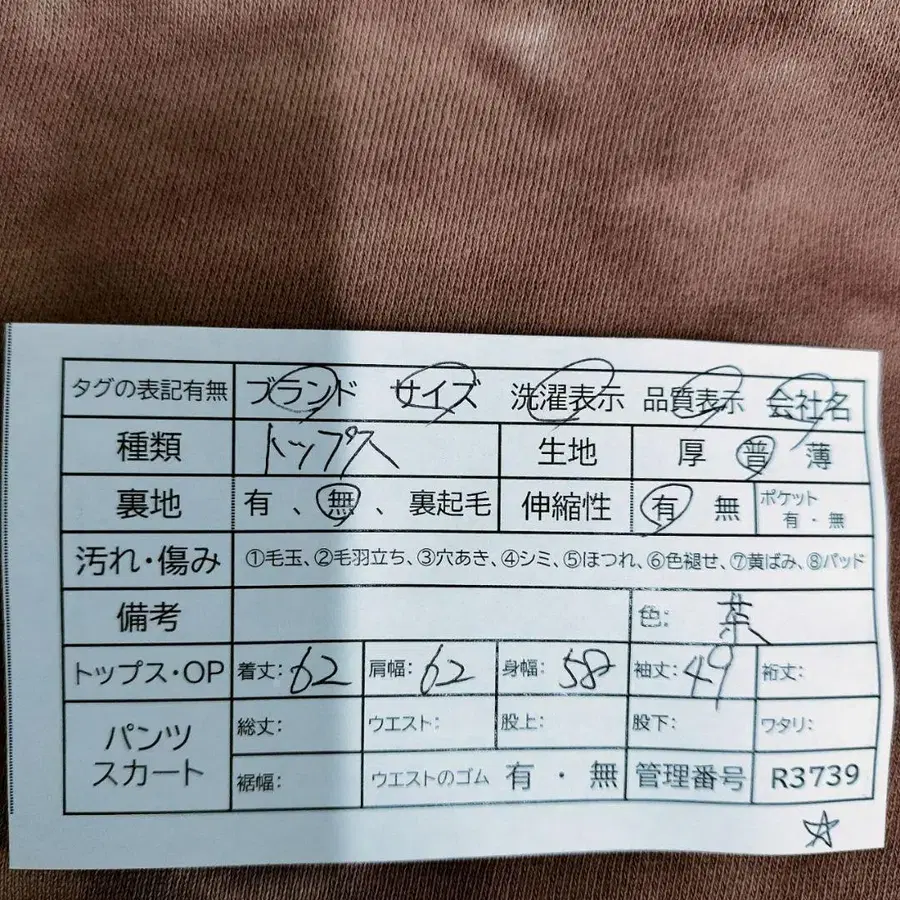 タグの表記有無 ブランド サイズ 洗濯表示 品質表示 会社名
種類 トップス 生地 厚 普 薄
裏地 有 、無 、裏起毛 伸縮性 有 無 ポケット 有・無
汚れ・傷み ①毛玉、②毛羽立ち、③穴あき、④シミ、⑤ほつれ、⑥色褪せ、⑦黄ばみ、⑧パッド
備考 色: 茶
トップス・OP 着丈: 62 肩幅: 62 身幅: 58 袖丈: 49 裄丈:
パンツ スカート 総丈: ウエスト: 股上: 股下: ワタリ:
裾幅: ウエストのゴム 有・無 管理番号 R3739